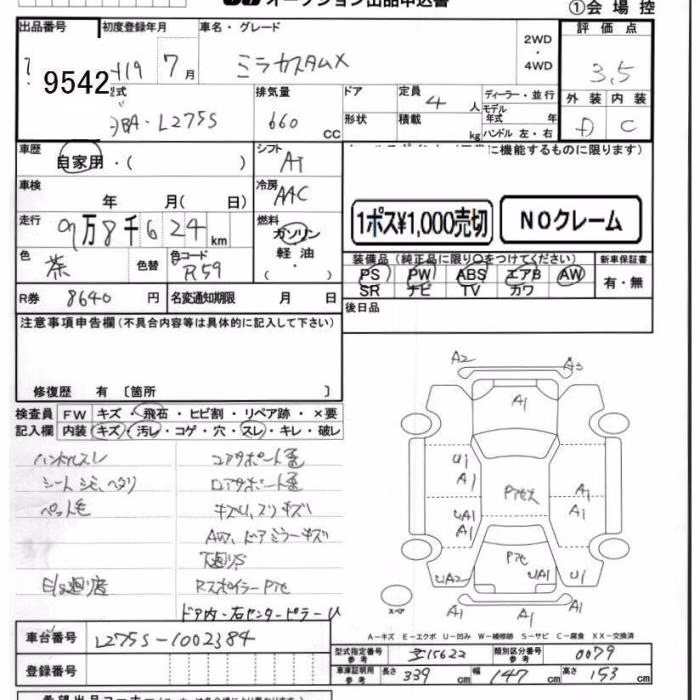 オークション出品申込書
①会場控
出品番号 初度登録年月 車名・グレード 評価点
9542 H19 7月 ミラカスタムX 2WD・4WD 3.5
型式 排気量 ドア 定員 ディーラー・並行 外装 内装
DBA-L275S 660cc 形状 4人 積載 kg モデル年式 年 ハンドル 左・右 D C
車歴 自家用・( ) シフト AT
に機能するものに限ります)
車検 年 月(日) 冷房 AAC
1ポス¥1,000売切 NOクレーム
走行 9万8千624km 燃料 ガソリン 軽油 ・( )
色 茶 色替 色コード R59
装備品(純正品に限り○をつけてください) 新車保証書
PS PW ABS エアB AW 有・無
SR ナビ TV カワ
R券 8640円 名変通知期限 月 日
後日品
注意事項申告欄(不具合内容等は具体的に記入して下さい)
修復歴 有 〔箇所 〕
検査員 FW キズ・飛石・ヒビ割・リペア跡・×要
記入欄 内装 キズ・汚レ・コゲ・穴・スレ・キレ・破レ
ハンドルスレ
シートシミ、ヘタリ
ペット毛
コアサポート
ロアサポート
キズU、スリキズ
AW、ドアミラーキズ
下廻りS
RスポイラーPアセ
ドア内・右センターピラーU
A2 A3
A1
U1
A1
Pアセ大
A1
A1
UA1
A1
Pアセ
UA2 UA1 U1
A1 A1 A1
スペア
A-キズ E-エクボ U-凹み W-補修跡 S-サビ C-腐食 XX-交換済
車台番号 L275S-1002384
型式指定番号 参考 15622 類別区分番号 参考 0079
登録番号
車庫証明用 参考 長さ 339 幅 147 高さ 153 cm
希望出品コーナー